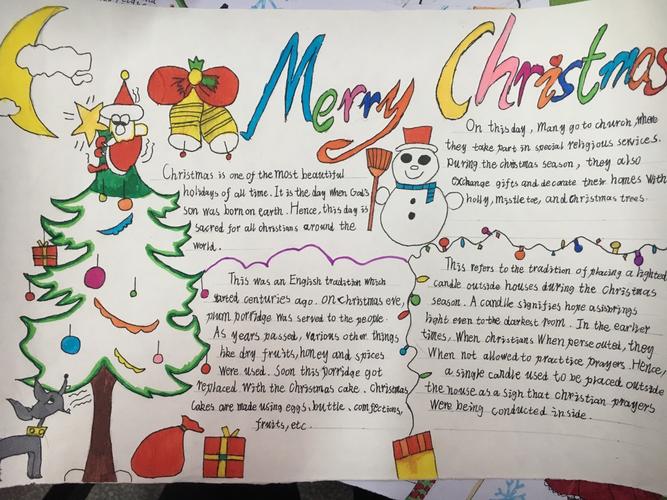 Merry Christmas
Christmas is one of the most beautiful
holidays of all time. It is the day when God's
son was born on earth. Hence, this day is
sacred for all christians around the
world.
On this day, Many go to church, where
they take part in special religious services.
During the christmas season, they also
exchange gifts and decorate their homes with
holly, mistletoe, and christmas trees.
This was an English tradition which
started centuries ago. On christmas eve,
plum porridge was served to the people.
As years passed, various other things
like dry fruits, honey and spices
were used. Soon this porridge got
replaced with the Christmas cake. Christmas
Cakes are made using eggs, buttle, confections,
fruits, etc.
This refers to the tradition of placing a lighted
candle outside houses during the Christmas
season. A candle signifies hope as it brings
light even to the darkest room. In the earlier
times, When christians When perse outed, they
When not allowed to practtice prayers. Hence,
a single candle used to be placed outside
the house as a sigh that christian prayers
Were being conducted inside.